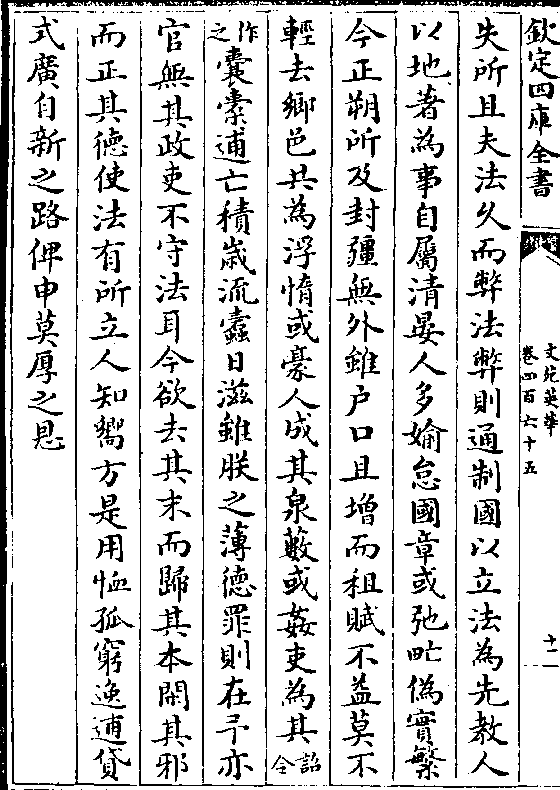 欽定四庫全書
文苑英華
卷四百六十五
十一
失所且夫法久而弊法弊則通制國以立法為先教人
以地著為事自屬清晏人多婾怠國章或弛甿偽實繁
今正朔所及封疆無外雖户口且增而租賦不益莫不
輕去鄉邑共為浮惰或豪人成其泉藪或姦吏為其詔令
作之囊橐逋亡積歲流蠹日滋雖朕之薄德罪則在予亦
官無其政吏不守法耳今欲去其末而歸其本閑其邪
而正其德使法有所立人知嚮方是用恤孤窮逸逋貸
式廣自新之路俾申莫厚之恩